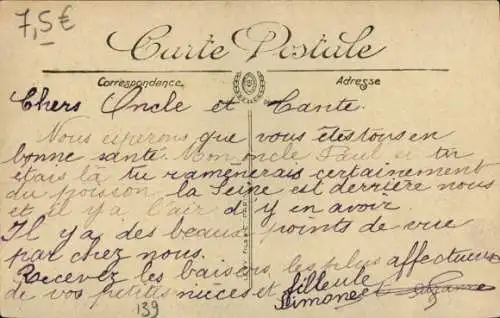 7,5€
Carte Postale
Correspondance Adresse
Chers Oncle et Tante.
Nous esperons que vous êtes tous en
bonne santé. Mon oncle Paul si tu
etais la tu ramenerais certainement
du poisson la Seine est derrière nous
et il y a l'air d'y en avoir.
Il y a des beaux points de vue
par chez nous.
Recevez les baisers les plus affectueux
de vos petites nièces et filleule
Simone et
139